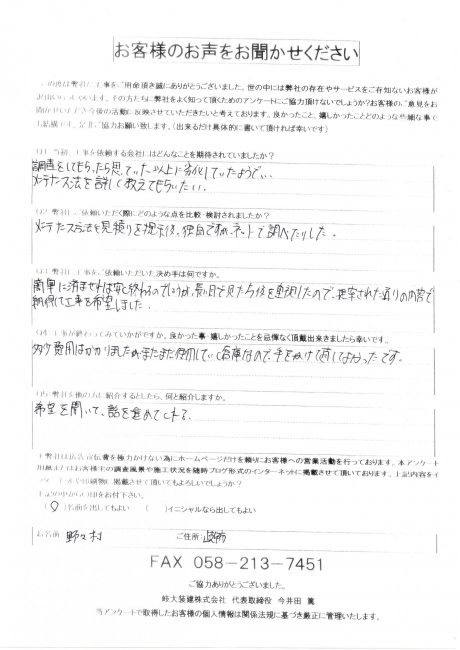 お客様のお声をお聞かせください
この度は弊社に工事をご用命頂き誠にありがとうございました。世の中には弊社の存在やサービスをご存知ないお客様が
その方たちに弊社をよく知って頂くためのアンケートにご協力頂けないでしょうか?お客様のご意見をお
今後の活動に反映させていただきたいと考えております。良かったこと、嬉しかったことどのような些細な事で
結構です。是非ご協力お願い致します。(出来るだけ具体的に書いて頂ければ幸いです)
Q1 当初、工事を依頼する会社にはどんなことを期待されていましたか?
調査をしてもらったら思っていた以上に劣化していたようで、
メンテナンス方法を詳しく教えてもらいたい。
Q2 弊社にご依頼いただく際にどのような点を比較・検討されましたか?
メンテナンス方法を見積りを提示後、独自ですが、ネットで調べたりした。
Q3 弊社に工事をご依頼いただいた決め手は何ですか。
簡単に済ませれば安く終わるのでしょうが、長い目で見た今後を重視したので、提案された通りの内容で
納得して工事を希望しました。
Q4 工事が終わってみていかがですか。良かった事・嬉しかったことを忌憚なく頂戴出来きましたら幸いです。
費用はかかりましたが、まだまだ使用していく倉庫なので、手をかけて直してよかったです。
Q5 弊社を他の方に紹介するとしたら、何と紹介しますか。
希望を聞いて、話を進めてくれる。
弊社は広告宣伝費を極力かけない為にホームページだけを頼りにお客様への営業活動を行っております。本アンケート
用紙またはお客様宅の調査風景や施工状況を随時ブログ形式のインターネットに掲載させて頂いております。上記内容をイ
掲載させて頂いてもよろしいでしょうか?
上記の中から○印をお付下さい。
(○)名前を出してもよい ( )イニシャルなら出してもよい
お名前 野々村 ご住所:岐阜市
FAX 058-213-7451
ご協力ありがとうございました。
岐大装建株式会社 代表取締役 今井田 篤
当アンケートで取得したお客様の個人情報は関係法規に基づき厳正に管理いたします。